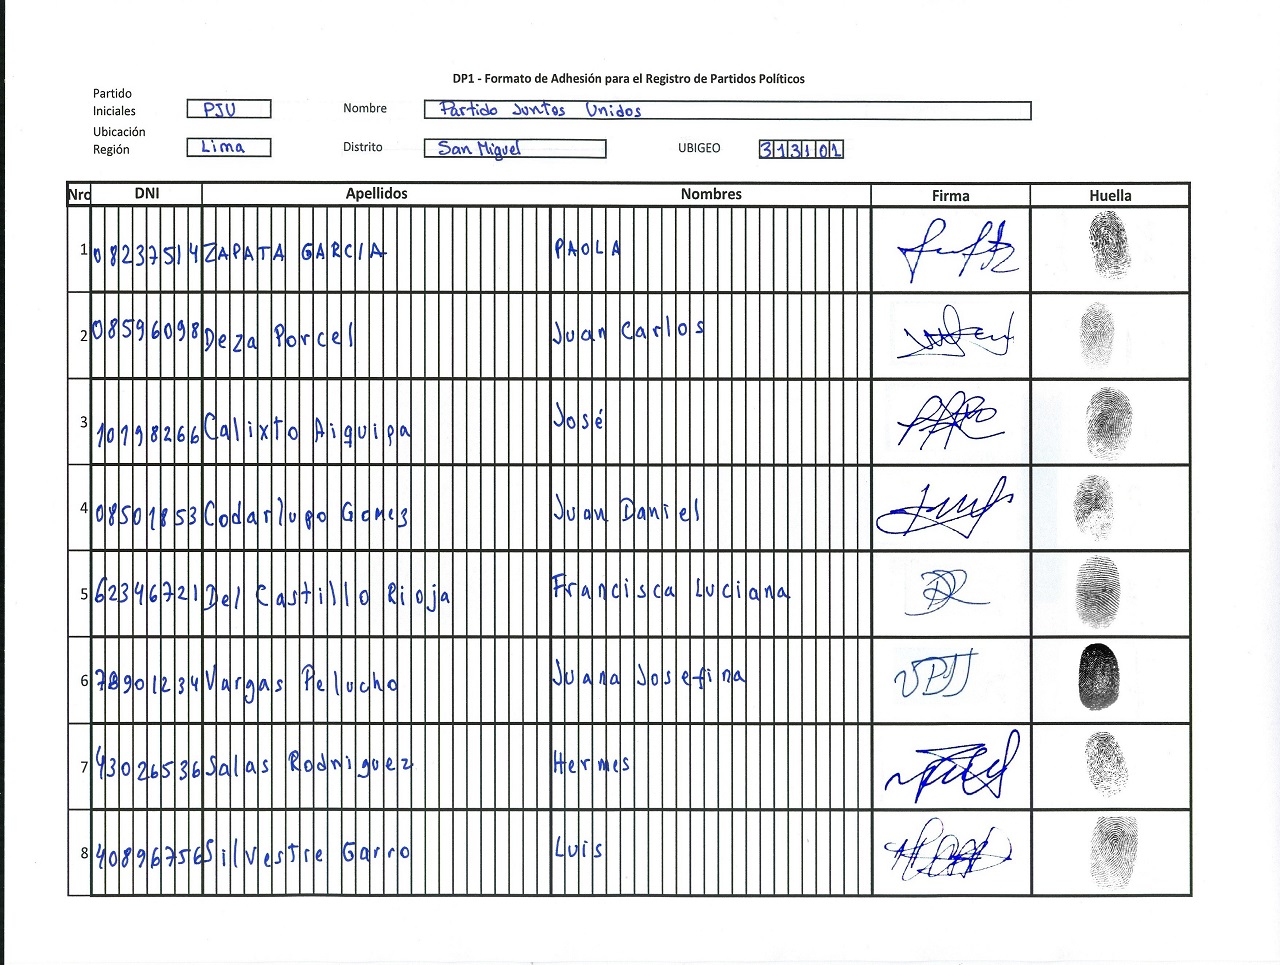 DP1 - Formato de Adhesión para el Registro de Partidos Políticos
Partido
Iniciales PJU Nombre Partido Juntos Unidos
Ubicación
Región Lima Distrito San Miguel UBIGEO 313101
Nro DNI Apellidos Nombres Firma Huella
1 08237514 ZAPATA GARCIA PAOLA
2 08596098 Deza Porcel Juan Carlos
3 10798266 Calixto Aiquipa José
4 08501853 Codarlupo Gomez Juan Daniel
5 62346721 Del Castillo Rioja Francisca Luciana
6 78901234 Vargas Pelucho Juana Josefina
7 43026536 Salas Rodriguez Hermes
8 40896756 Silvestre Garro Luis